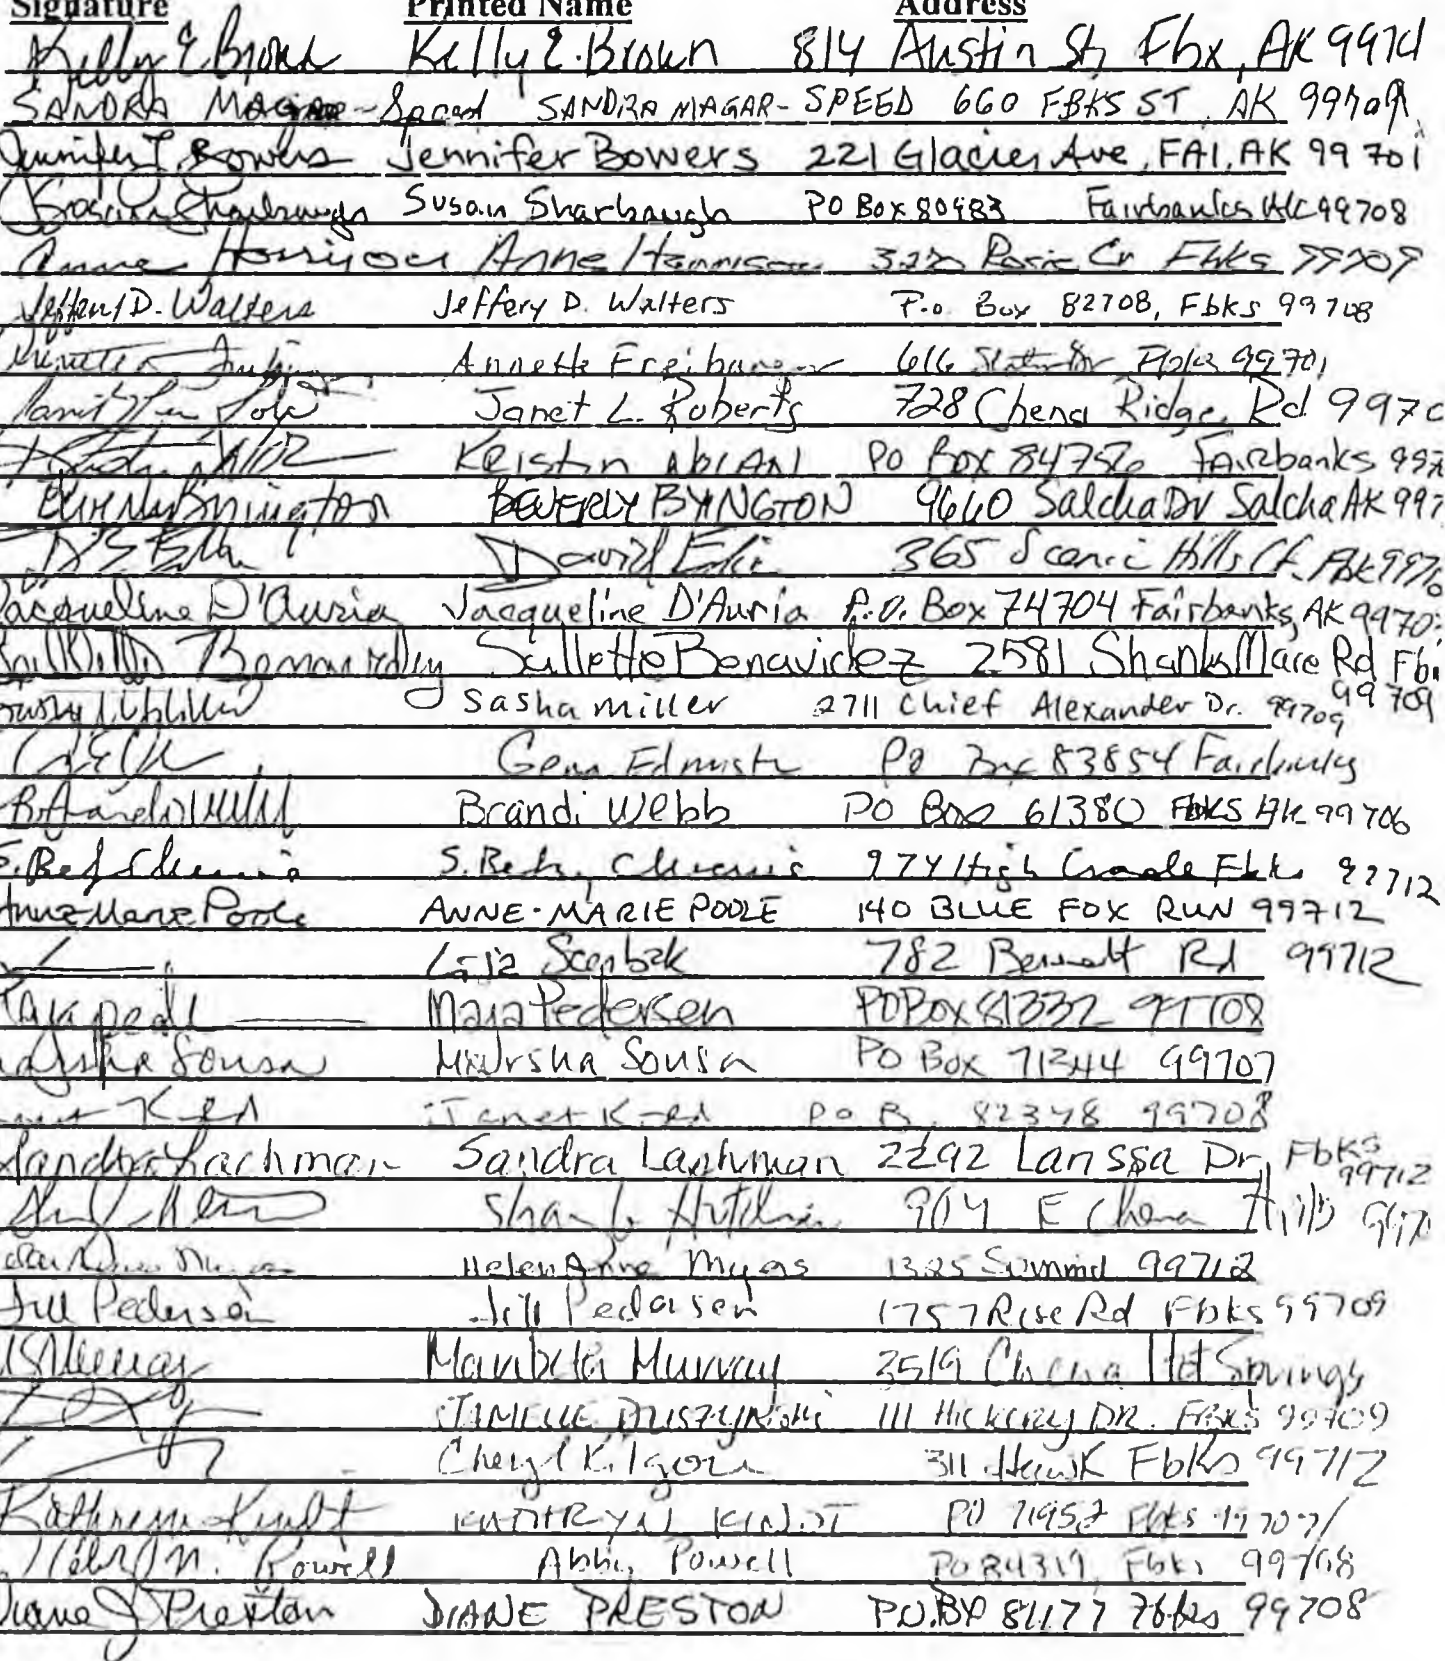 Signature Printed Name Address
Kelly E. Brown Kelly E. Brown 814 Austin St Fbx, AK 9970
SANDRA MAGAR-Speed SANDRA MAGAR-SPEED 660 FBKS ST, AK 99709
Jennifer J. Bowers Jennifer Bowers 221 Glacier Ave, FAI, AK 99701
Susan Sharbaugh Susan Sharbaugh PO Box 80983 Fairbanks AK 99708
Anne Harrison Anne Harrison Rosie Cr Fbks 99709
Jeffery D. Walters Jeffery D. Walters P.O. Box 82708, Fbks 99708
Annette 616 Slater Dr Fbks 99701
Janet L. Roberts 728 Chena Ridge Rd 9970
Kristin PO Box 84756 Fairbanks 997
Beverly Byington BEVERLY BYINGTON 9660 Salcha Dr Salcha AK 997
David 365 Scenic Hills Ct. Fbk 9970
Jacqueline D'Auria Jacqueline D'Auria P.O. Box 74704 Fairbanks, AK 9970
Sallette Benavidez 2581 Shanly Mare Rd Fbk
99709
Sasha miller 2711 Chief Alexander Dr. 99709
PO Box 83854 Fairbanks
Brandi Webb PO Box 61380 FBKS AK 99706
S. Betsy 974 High Grade Fbks 99712
Anne-Marie Poole ANNE-MARIE POOLE 140 BLUE FOX RUN 99712
782 Bennett Rd 99712
Maja Pedersen PO Box 81332 99708
Marsha Sousa Marsha Sousa PO Box 71344 99707
Janet PO B. 82348 99708
Sandra Lachman Sandra Lachman 2292 Larissa Dr, Fbks
99712
904 E Chena Hills 9970
Helen Anne Myers 1325 Summit 99712
Jill Pedersen Jill Pedersen 1757 Rise Rd Fbks 99709
Maribeth Murray 3519 Chena Hot Springs
111 Hickory DR. FBKS 99709
Cheryl Kilgore 311 Hawk Fbks 99712
Kathryn Kindt KATHRYN KINDT PO 71952 Fbks 99707
Powell Abby Powell PO 84319, Fbks 99708
Diane J Preston DIANE PRESTON P.O. BX 81177 Fbks 99708